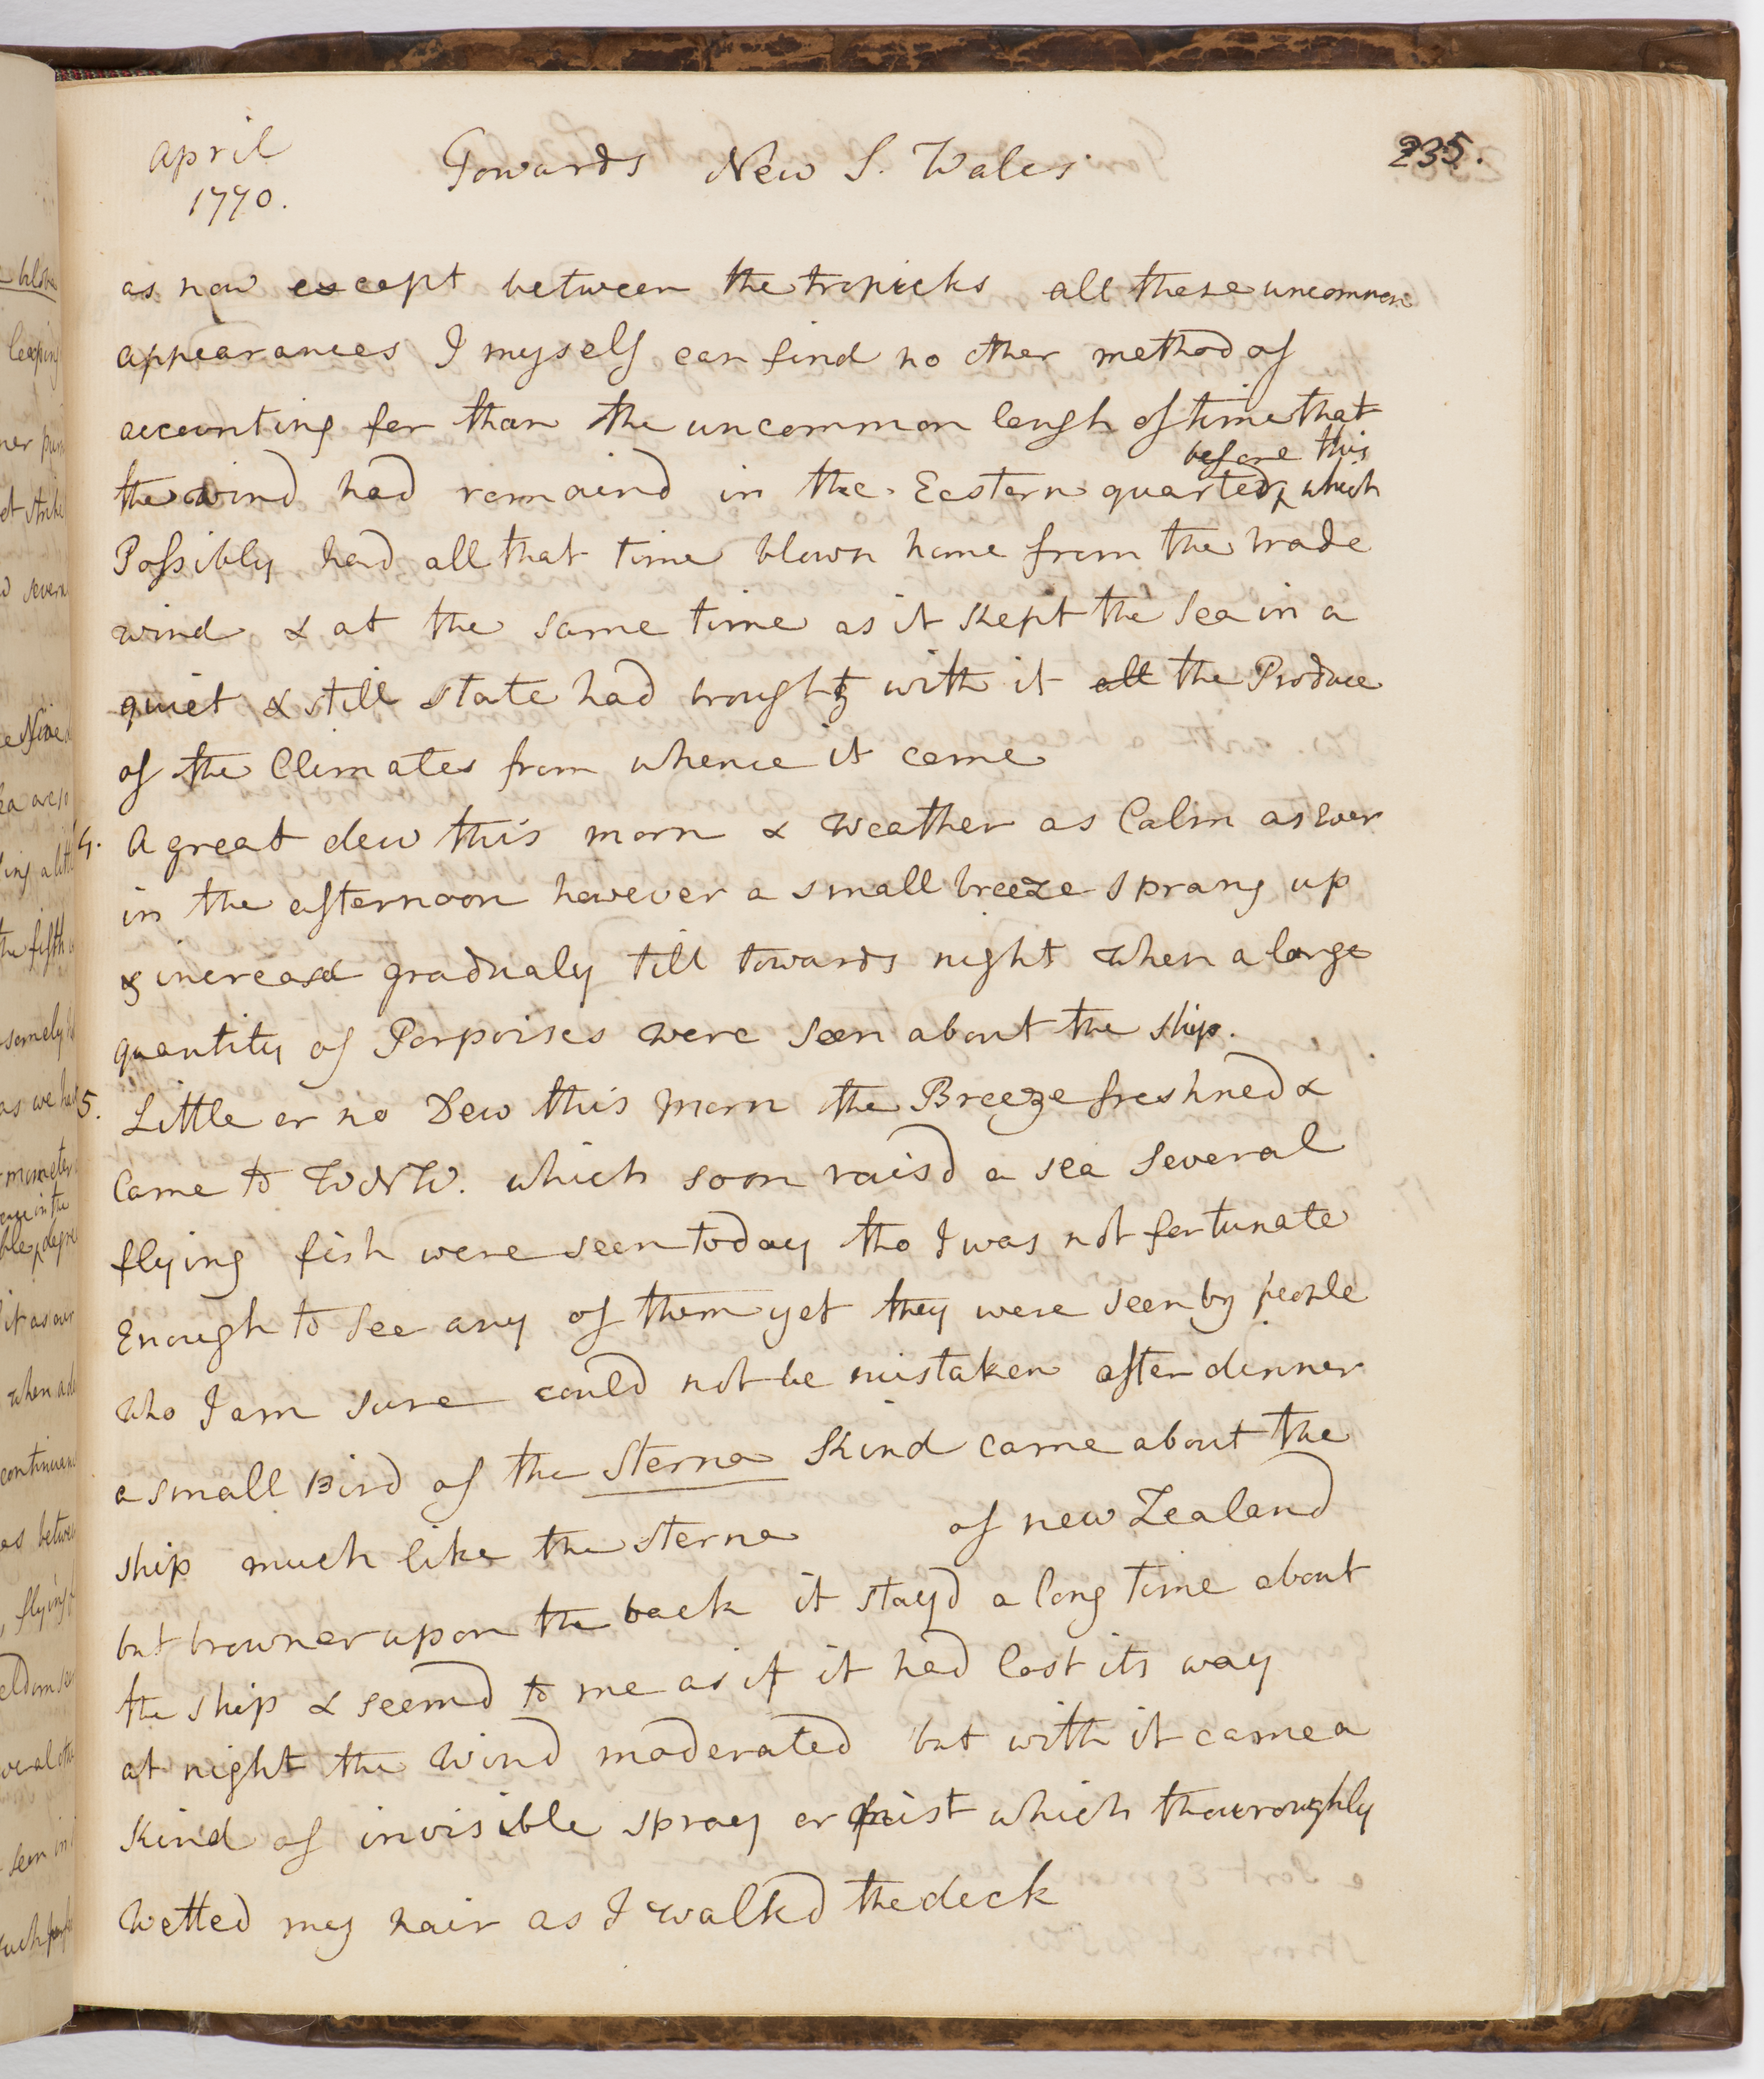 April
1770.
Towards New S. Wales
235.
as now except between the tropicks all these uncommon
appearances I myself can find no other method of
accounting for than the uncommon lengh of time that
before this
the wind had remaind in the Eastern quarter, which
Possibly had all that time blown home from the trade
wind & at the same time as it kept the Sea in a
quiet & still state had brought with it all the Produce
of the Climates from whence it came
4. A great dew this morn & weather as Calm as Ever
in the afternoon however a small breeze sprang up
& increasd gradualy till towards night when a large
quantity of Porpoises were seen about the ship.
5. Little or no Dew this morn the Breeze freshned &
Came to WNW. which soon raisd a sea several
flying fish were seen today tho I was not fortunate
Enough to see any of them yet they were seen by people
who I am sure could not be mistaken after dinner
a small Bird of the Sterna Kind came about the
ship much like the sterna of new Zealand
but browner upon the back it stayd a long time about
the ship & seemd to me as if it had lost its way
at night the wind moderated but with it came a
kind of invisible spray or mist which thouroughly
wetted my hair as I walkd the deck